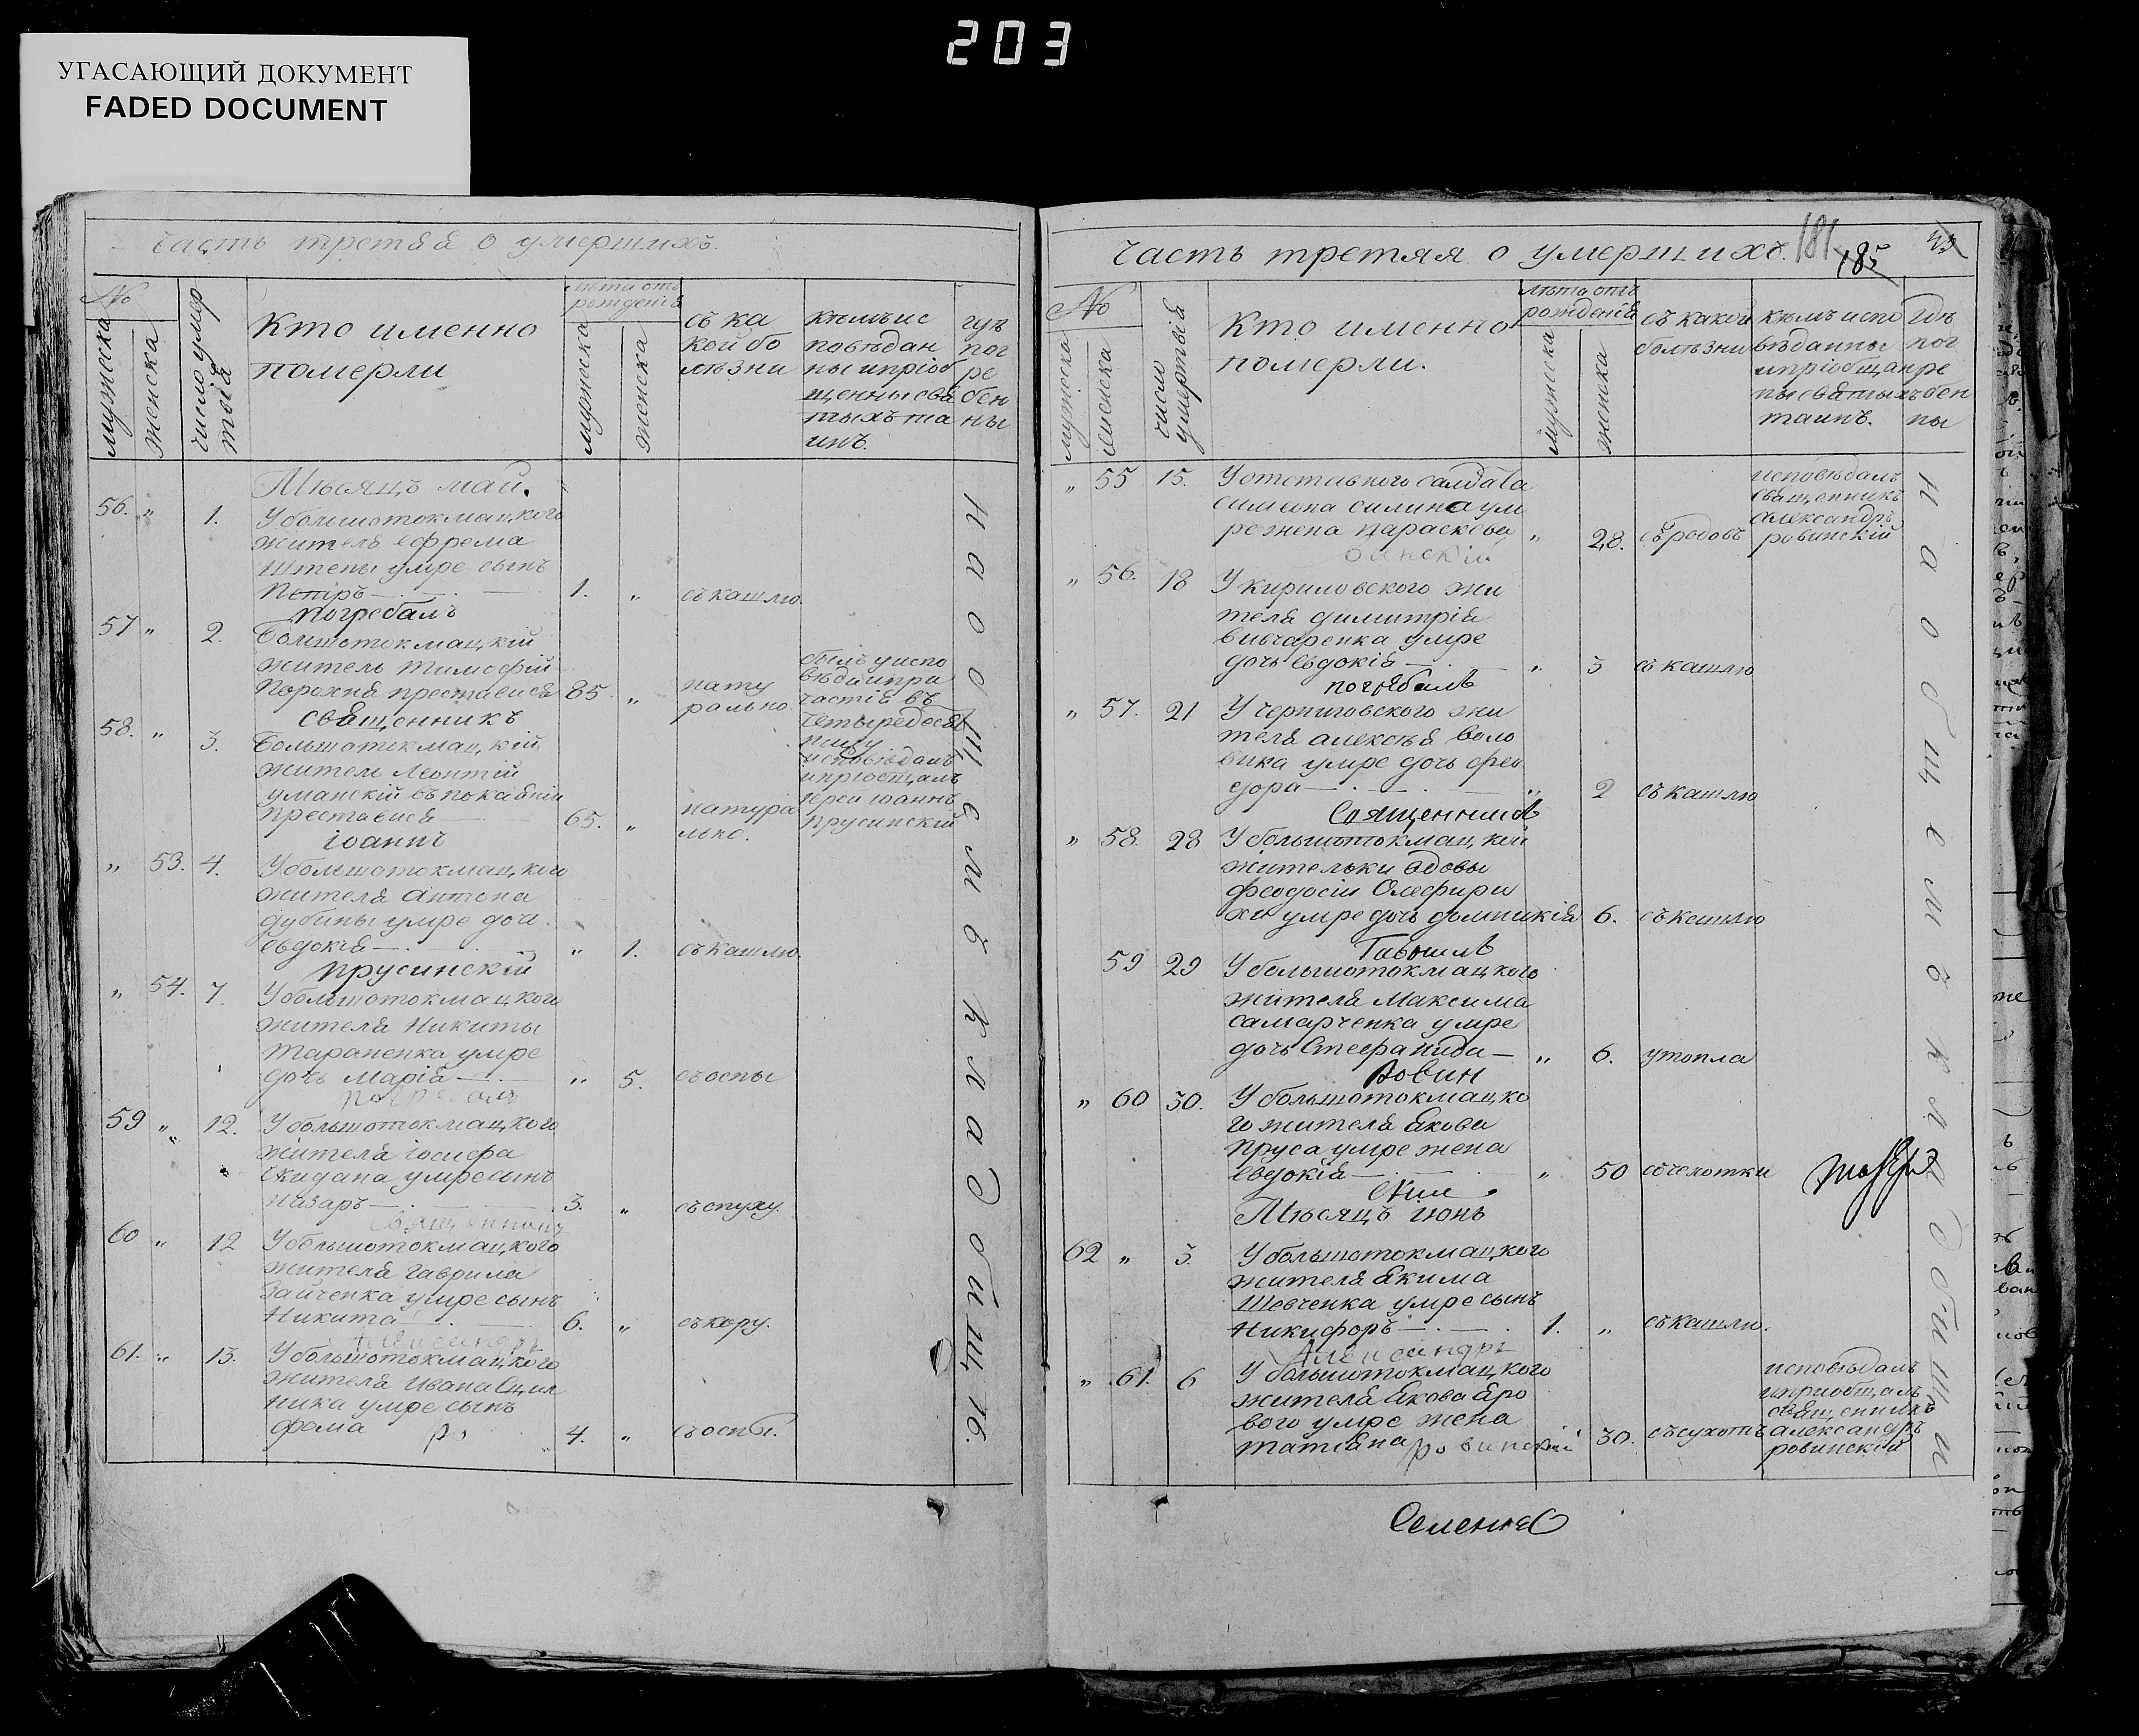 203
УГАСАЮЩИЙ ДОКУМЕНТ
FADED DOCUMENT
часть третяя о умершихъ.
№
мужеска
женска
число умер
тыя
Кто именно
померли
лѣта отъ
рожденія
мужеска
женска
съ ка
кой бо
лѣзни
кѣмъ ис
повѣдан
ны и пріоб
щенны свя
тыхъ та
инъ.
гдѣ
пог
ре
бен
ны
Мѣсяцъ май.
56. " 1. У большотокмацкого
жителя ефрема
Штепы умре сынъ
Петръ 1. " съ кашлю.
погребалъ
57 " 2. Большотокмацкій
житель тимофій
Порохня преставися 85. " нату
рально
былъ у испо
вѣди и при
частія въ
четыредеся
тницу
священникъ
58. " 3. Большотокмацкій
житель Леонтій
уманскій въ покаяніи
преставися 65. " натура
льно.
исповѣдалъ
и пріобщалъ
іерей іоаннъ
прусинскій
іоаннъ
" 53. 4. У большотокмацкого
жителя Антона
дубины умре дочь
евдокія " 1. съ кашлю.
прусинскій
" 54. 7. У большотокмацкого
жителя Никиты
Тараненка умре
дочь марія " 5. съ оспы
погребалъ
59 " 12. У большотокмацкого
жителя іосифа
умре сынъ
Назаръ 3. " съ пуху.
священникъ
60 " 12 У большотокмацкого
жителя гаврила
Зайченка умре сынъ
Никита 6. " съ кору.
Александръ
61. " 13. У большотокмацкого
жителя ивана
умре сынъ
фома 4. " съ оспы.
ро
на общемъ кладбищѣ.
часть третяя о умершихъ.
181
185
№
мужеска
женска
число
умертвія
Кто именно
померли.
лѣта отъ
рожденія
мужеска
женска
съ какой
болѣзни
кѣмъ испо
вѣданны
и пріобщан
ны святыхъ
таинъ.
Гдѣ
пог
ре
бен
ны
" 55 15. У отставного салдата
симеона силина ум
ре жена параскева " 28. съ родовъ
исповѣдалъ
священникъ
александръ
ровинскій
" 56. 18 У кириловского жи
теля димитрія
вивчаренка умре
дочь евдокія " 3 съ кашлю
погребалъ
" 57. 21 У черниговского жи
теля алексѣя воло
вика умре дочь фео
дора " 2 съ кашлю
Священникъ
" 58. 28 У большотокмацкой
жительки вдовы
феодосіи Олефири
хи умре дочь домникія 6. съ кашлю
Гавриилъ
59 29 У большотокмацкого
жителя Максима
самарченка умре
дочь Стефанида " 6. утопла
" 60 30. У большотокмацко
го жителя Якова
Пруса умре жена
евдокія " 50 съ чехотки
Мѣсяцъ іюнь
62 " 3. У большотокмацкого
жителя Якима
Шевченка умре сынъ
Никифоръ 1. " съ кашлю.
Александръ
" 61. 6 У большотокмацкого
жителя Якова Яро
вого умре жена
татіана 30. съ сухотъ
ровинскій
исповѣдалъ
и пріобщалъ
священникъ
александръ
ровинскій
на общемъ кладбищи
Семенов